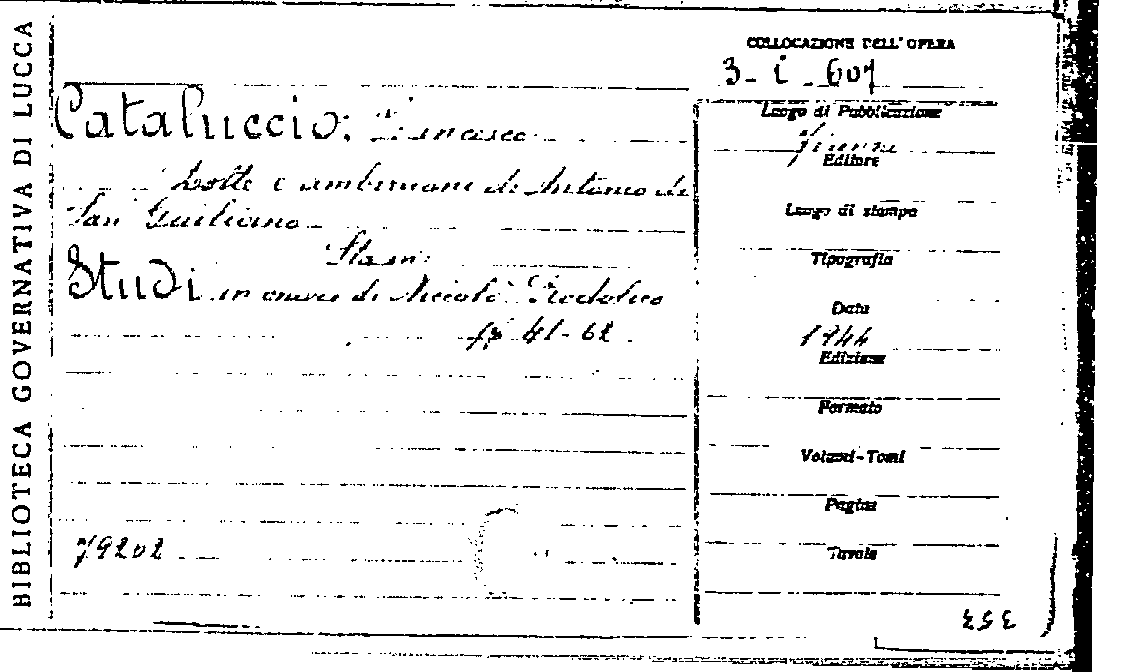 BIBLIOTECA GOVERNATIVA DI LUCCA
COLLOCAZIONE DELL'OPERA
3 - i - 607
Cataluccio: Francesco
Lotte e ambizioni di Antonio di
San Giuliano
Studi in onore di Niccolò Rodolico
41-62
79202
Luogo di Pubblicazione
Firenze
Editore
Luogo di stampa
Tipografia
Data
1944
Edizione
Formato
Volumi-Tomi
Pagine
Tavole
353